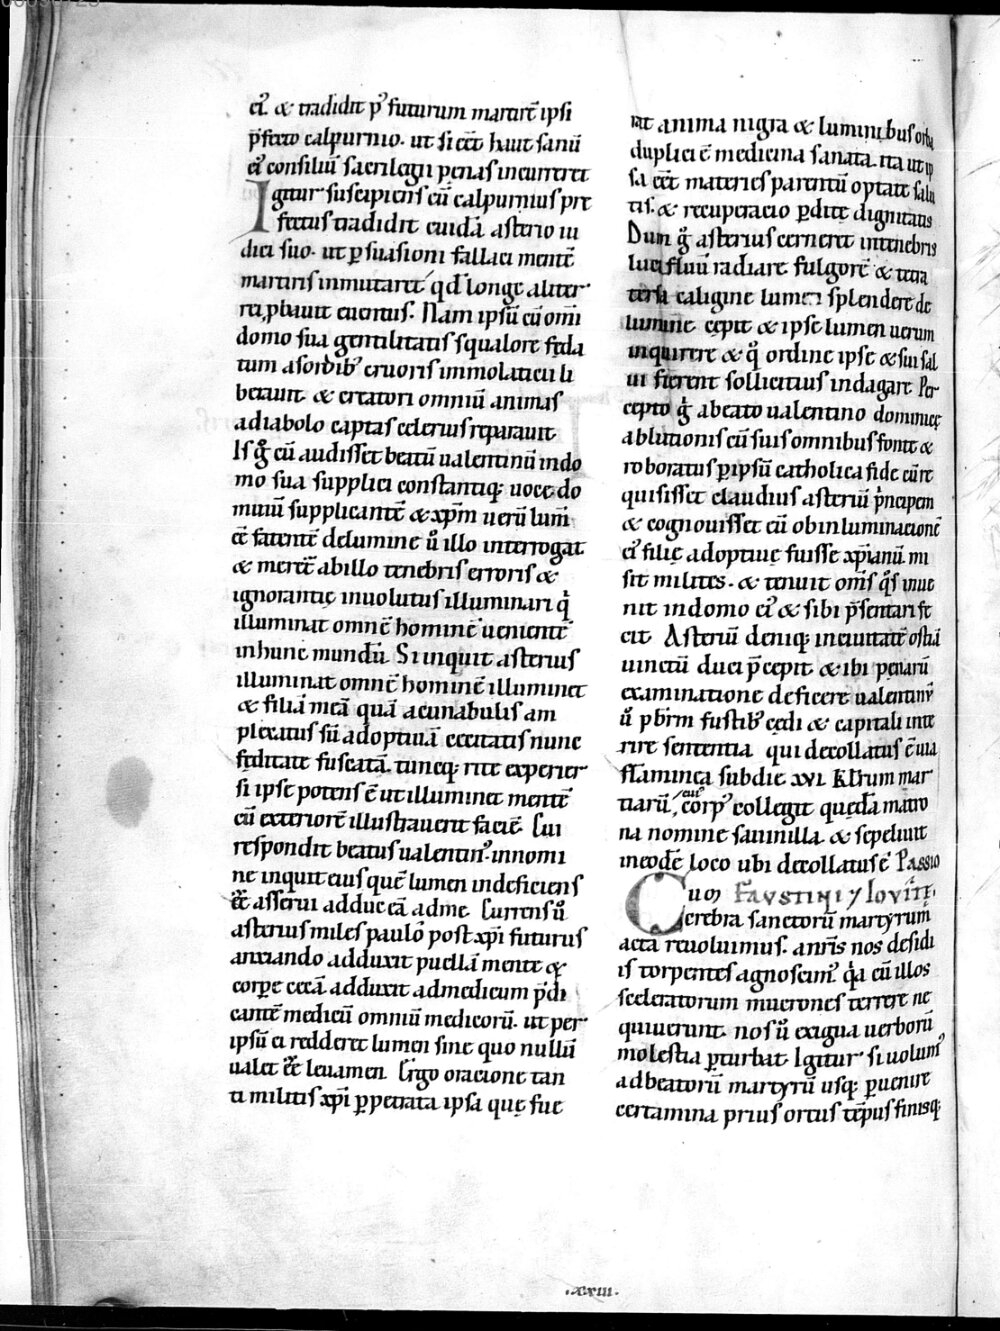 ei᷒. & tradidit p᷒ futurum martirē ipsi
p̄fecto calpurnio. ut si eēt haut sanū
ei᷒ consiliū sacrilegii penas incurreret
Igitur suscipiens eū calpurnius pre
fectus tradidit cuidā asterio iu
dici suo. ut p̱suasioni fallaci mentē
martiris inmutaret qd̄ longe aliter
rei ꝓbauit euentus. Nam ipsū cū om̄i
domo sua gentilitatis squalore feda
tum asordib᷒ cruoris immolaticii li
berauit. & creatori omniū animas
adiabolo captas celerius reparauit
Is g̊ cū audisset beatū ualentinū indo
mo sua supplici constantiq; uoce do
minū supplicantē & xp̄m uerū lum̄
eē fatentē delumine ū illo interrogat
& mente abillo tenebris erroris &
ignorantię inuolutus illuminari q̇
illuminat omnē hominē uenientē
inhunc mundū. Si inquit asterius
illuminat omnē hominē illuminet
& filiā meā quā acunabulis am
plexatus sū adoptiuā cecitatis nunc
fęditate fuscatā. tuncq; rite experier
si ipse potens ē ut illuminet mentē
cū exteriorē illustrauerit faciē. Cui
respondit beatus ualentin᷒. innomi
ne inquit eius quē lumen indeficiens
eē asserui adduc eā adme. Currens ū
asterius miles paulo post xp̄i futurus
anxiando adduxit puellā mente &
corpe cecā adduxit admedicum p̄di
cantē mediciū omniū medicorū. ut per
ipsū ei redderet lumen sine quo nullū
ualet eē leuamen. Ergo oracione tan
ti militis xp̄i p̱petrata ipsa quę fue
rat anima nigra & luminibus orba
duplici ē medicina sanata. ita ut ip
sa eēt materies parentū optate salu
tis. & recuperacio p̱ditę dignitatis
Dum g̊ asterius cerneret intenebris
lucifluū radiare fulgorē & tetra
tersa caligine lumen splendere de
lumine cępit & ipse lumen uerum
inquirere & q̊ ordine ipse & sui sal
ui fierent sollicitius indagare. Per
cepto g̊ abeato ualentino dominicę
ablutionis cū suis omnibus fonte &
roboratus p̱ipsū catholica fide cū re
quisisset claudius asteriū p̍ncipem
& cognouisset eū ob inluminacionē
ei᷒ filię adoptiuę fuisse xp̄ianū. mi
sit milites. & tenuit om̄s q̊s inue
nit indomo ei᷒ & sibi p̄sentari fe
cit. Asteriū deniq; inciuitatē ostiā
uinctū duci p̄cepit & ibi penarū
examinatione deficere ualentinū
ū pb̄rm fustib᷒ cędi & capitali inte
rire sententia qui decollatus ē uia
flaminea subdie xvi kl̄rum mar
tiarū, cui᷒ corp᷒ collegit quędā matro
na nomine sauinilla. & sepeliuit
ineodē loco ubi decollatus ē Passio
Cuoꝝ Favstini 7 Iovite.
Cerebra sanctorū martyrum
acta reuoluimus. an r̄is nos desidi
is torpentes agnoscim᷒ q̍a cū illos
sceleratorum mucrones terrere ne
quiuerunt. nos ū exigua uerborū
molestia p̱turbat. Igitur si uolum᷒
adbeatorū martyrū usq; p̱uenire
certamina prius ortus tēpus finisq;
.xxiii.